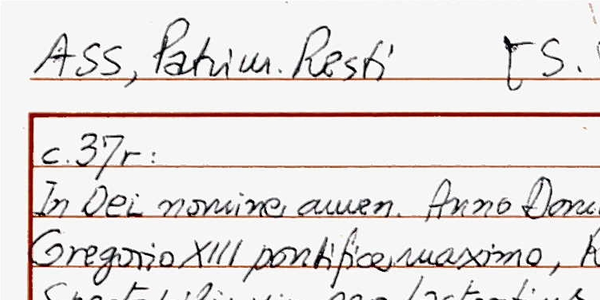 ASS, Patrim. Resti [S.
c.37r:
In Dei nomine, amen. Anno Domi
Gregorio XIII pontifice, maximo,